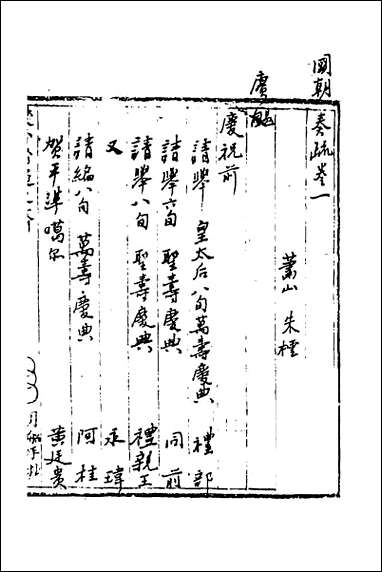 國朝
奏疏卷一
蕭山 朱橒
賡颺
慶祝前
請舉 皇太后八旬萬壽慶典 禮部
請舉六旬 聖壽慶典 同前
請舉八旬 聖壽慶典 禮親王
又 永瑋
請編八旬 萬壽慶典 阿桂
賀平準噶尔 黃廷貴